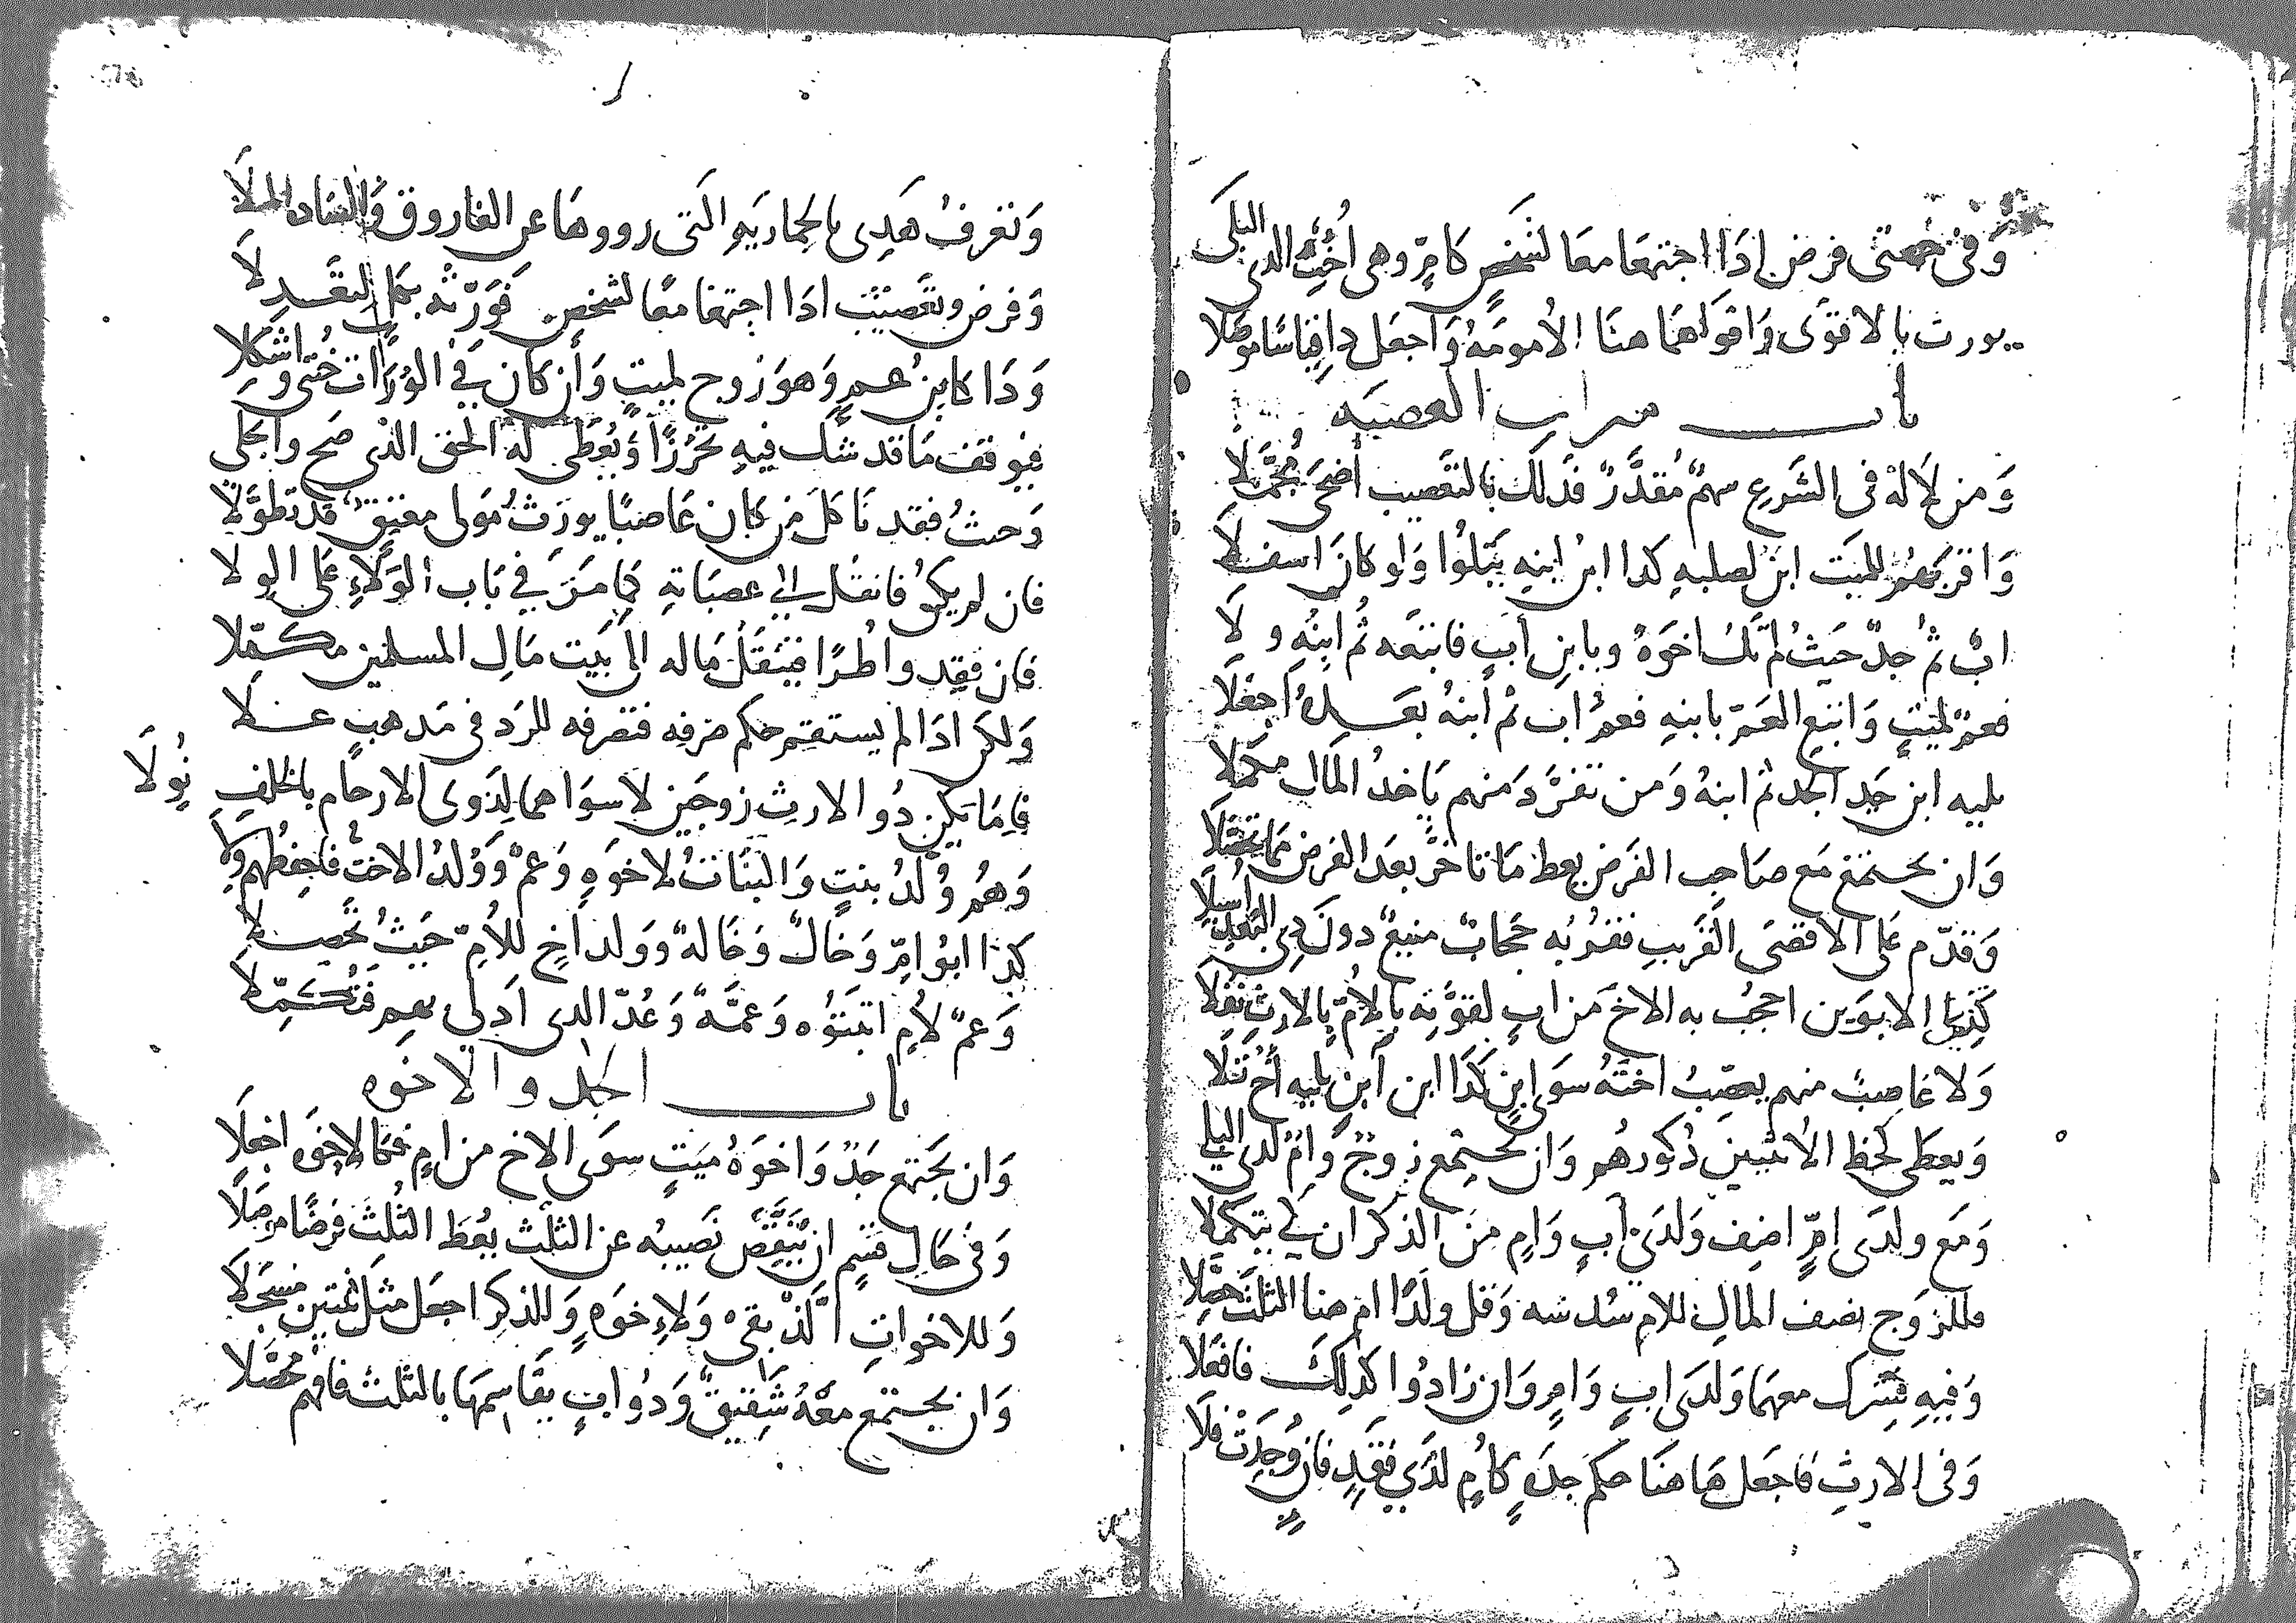 وَفى جهتى فرض اذا اجتمعا معا لشخص كامٍّ وهى اُخت الذى البلى
يورث بالاقوَى وَاقواهما هنا الامومة وَاجعل ذا قياسا موصلا
باب ميراث العصبه
وَمن لا له فى الشرع سهمٌ مُقدَّرٌ فذلك بالتعصيب أضحَى مُجمَّلا
وَاقربهم للميت ابنٌ لصلبهِ كذا ابنُ ابنهِ يتلوا وَلو كان اسفلا
ابٌ ثم جدٌّ حيثُ لم تكُ اخوةٌ وبابنِ أبٍ فاتبعه ثُم ابنِهِ ولا
فعمٌّ لميتٍ وَاتبع العمّ بابنهِ فعمُّ ابٍ ثم ابنهُ بعده اجعلا
يليه ابن جد الجد ثم ابنهُ وَمن تفرَّدَ منهم ياخذُ المال مكملا
وَان يجتمع مع صاحب الفرض يعط ما تاخر بعد الفرض مما تفضلا
وَقدّم على الاقصَى القريب فقربه حجابٌ منيعٌ دونَ ذى البعد اُسبلا
كذى الابوَين احجب به الاخ من ابٍ لقوَّته بالأمّ بالارث نفلا
وَلا عاصبٌ منهم يعصّبُ اختهُ سوَى ابنٍ كذا ابن ابنٍ يليه أخ تلا
وَيعطى كحظ الاُنثيين ذكورهُم وَان يجتمع زوجٌ وَامٌ لدى البلى
وَمَع ولدَى امٍّ اضف وَلدَى أبٍ وَامٍ من الذكران كى يتكملا
فللزوج نصف المال للام سُدسه وَقل ولدا ام هنا الثلث حصلا
وَفيهِ فشرك معهما وَلدَى ابٍ وَامٍ وَان زادُوا كذلك فافعلا
وَفى الارثِ فاجعل هاهنا حكم جدهٍ كاُمٍ لدَى فقدٍ فان وُجدت فلا
وَتعرفُ هَذى بالحماريه التى رووها عن الفاروق وَالساده الملا
وَفرض وتعصيب اذا اجتمعا معًا لشخص فَوَرّثه بكل التقدلا
وَذا كابنُ عمٍ وَهوَ زوج لميتٍ وَأن كان فى الورّاث خنثى واشكلا
فيوقف ما قد شك فيهِ تحرُّزًا وَيُعطى له الحق الذى صح وانجلى
وَحيثُ فقدنا كل من كان عاصبًا يورّث مَولى معتقٌ قد تطوَّلا
فان لم يكن فانقل الى عصباته كما مَرّ فى باب الوَلاءِ على الولا
فان فقدوا طُرًا فينقل ماله الى بيت مال المسلمين مكمّلا
وَلكن اذا لم يستقم حكم صرفه فتصرفه للرد فى مذهب علا
فاما تكن ذُو الارث زوجين لا سواهما لذوى الارحام بالخلفِ نُولا
وَهُم وُلدُ بنتٍ وَالبنات لاخوَهِ وَعمٍّ وَوُلدُ الاختِ فاحفظهم ولا
كذا ابوا امٍّ وَخالٌ وَخالهٌ وَولد اخٍ للاُمِّ حيثُ تحصلا
وَعمٌ لاُمٍ ابنتُوه وَعمَّهٌ وَعُدّ الذى ادلى بهم فتكمّلا
باب الجد والاخوه
وَان يجتمع جدٌّ وَاخوَهُ ميتٍ سوَى الاخ من امٍ فكالاخوَه اجعلا
وَفى حال قسمٍ ان يَنقص نَصيبُه عن الثلث يُعطَ الثلث فرضًا مرصلا
وَللاخواتِ الّذ بقى وَلاِخوَهٍ وَللذكر اجعل مثل ثنتين مسجلا
وَان يجتمع معَهُ شَقيقٌ وَذُو ابٍ يقاسمها بالثلث فافهم محصّلا